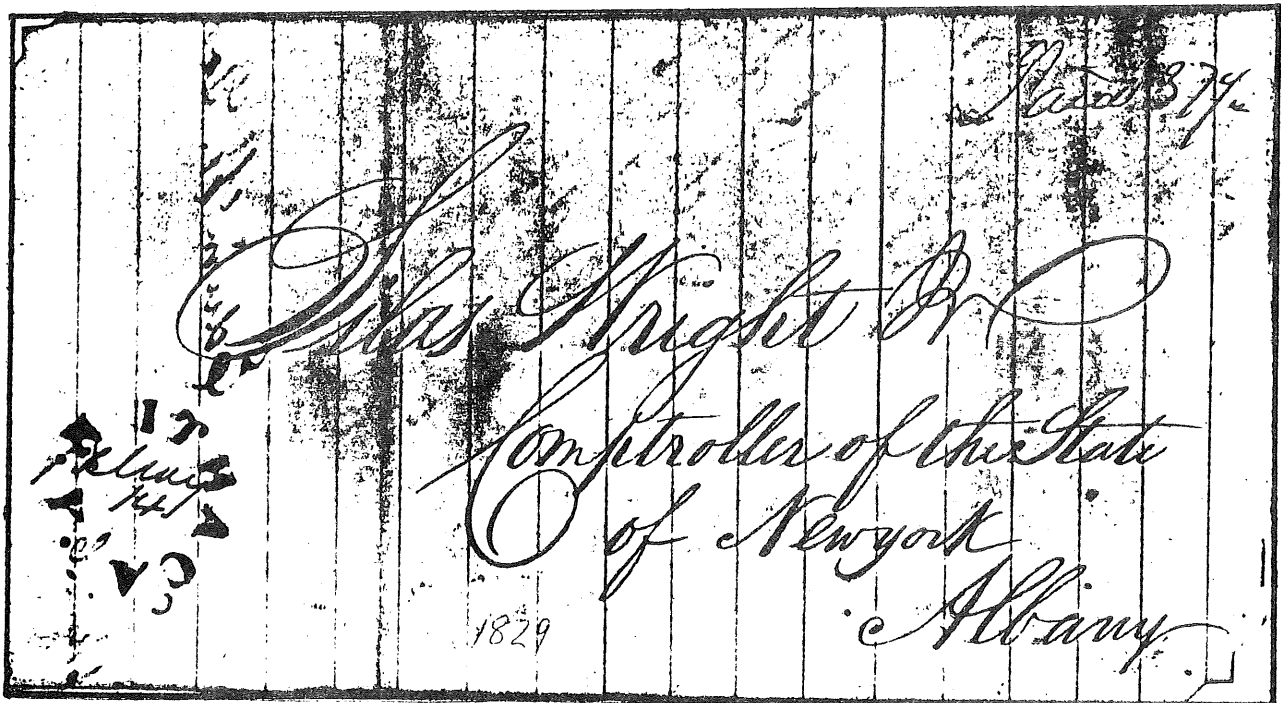 Paid 37½
Silas Wright Jr
Comptroller of the State
of Newyork
Albany
14
1829